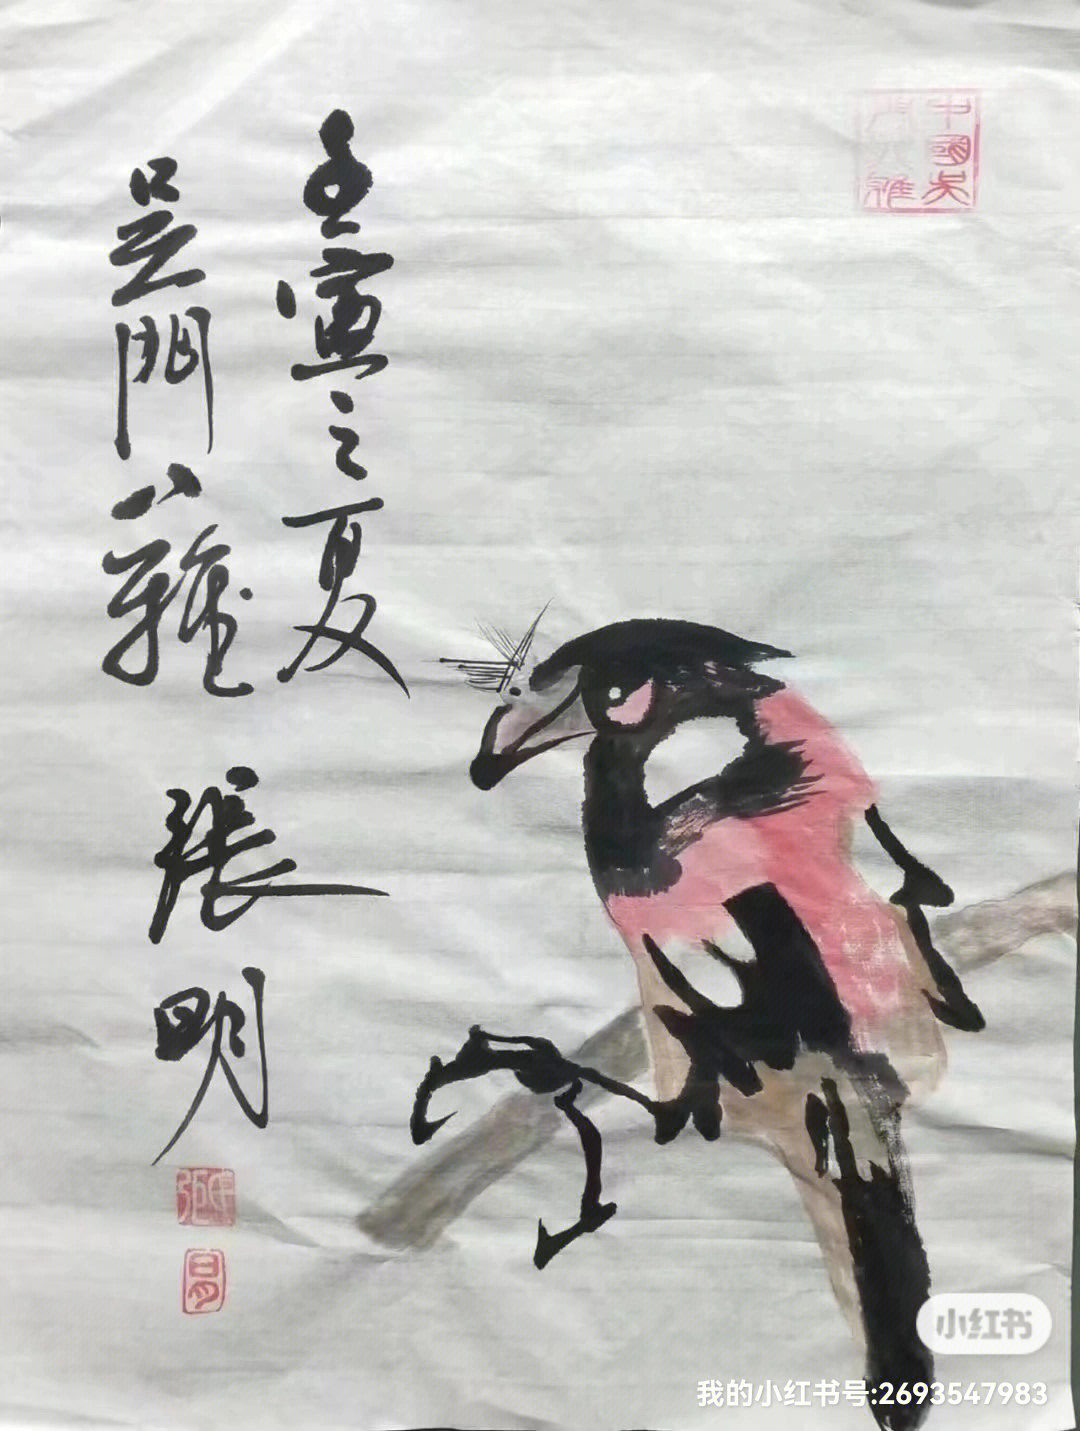 中國吴
門八雅
壬寅之夏
吴門八雅 張明
小红书
我的小红书号:2693547983